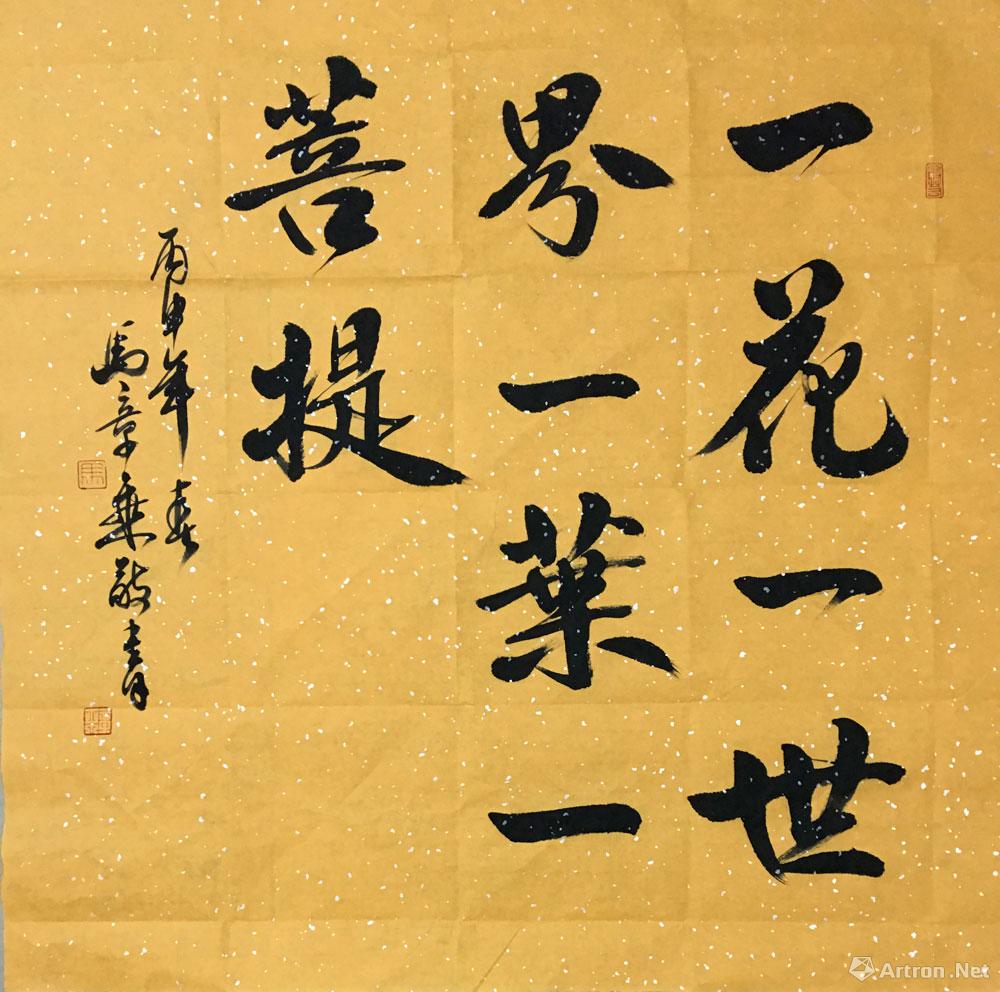 一花一世
界一葉一
菩提
丙申年春
馬章乗敬書
Artron.Net